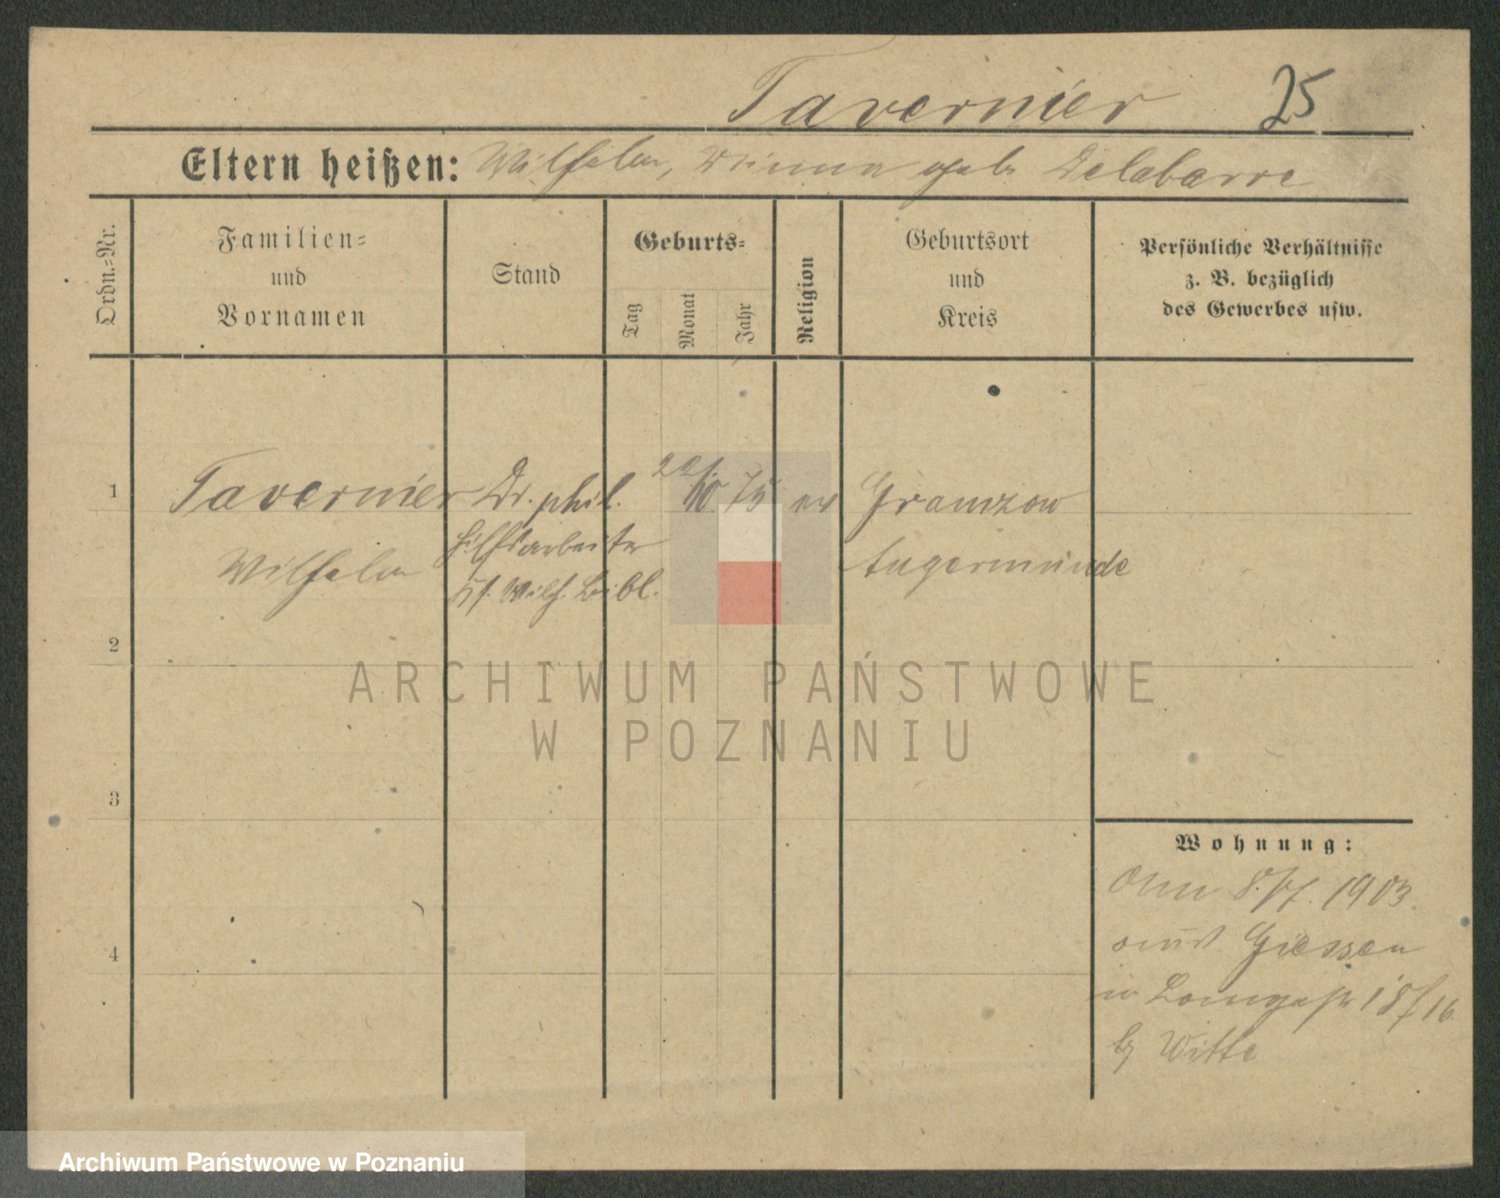 Tavernier 25
Eltern heißen: Wilhelm, Minna geb. Delabarre
Ordn.-Nr.
Familien-
und
Vornamen
Stand
Geburts-
Tag
Monat
Jahr
Religion
Geburtsort
und
Kreis
Persönliche Verhältnisse
z. B. bezüglich
des Gewerbes usw.
1 Tavernier Dr. phil. 22/10 75 ev Gramzow
Wilhelm Hilfsarbeiter Angermünde
Wilh. Bibl.
2
3
4
ARCHIWUM PAŃSTWOWE
W POZNANIU
Wohnung:
1903
aus Giessen
in 18/16
b/ Witte
Archiwum Państwowe w Poznaniu